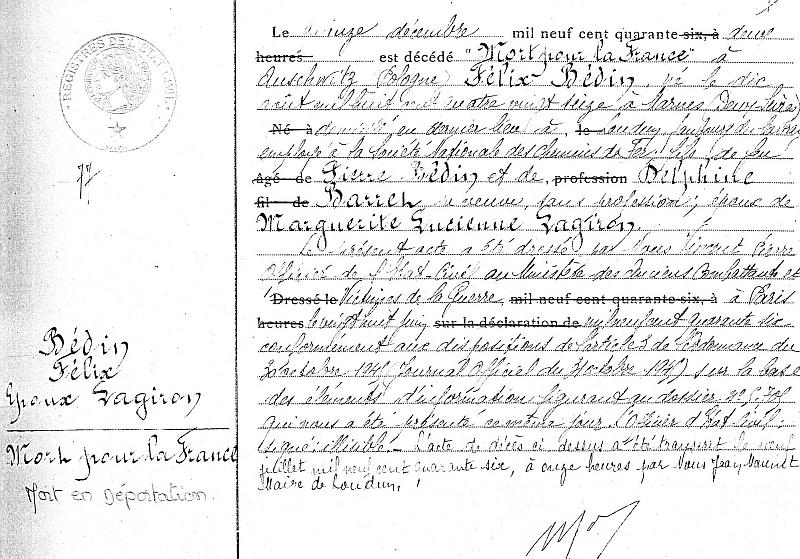 REGISTRES DE L'ETAT CIVIL
77
Bédin
Félix
Epoux Lagiron
Mort pour la France
Mort en Déportation.
Le quinze décembre mil neuf cent quarante six, à deux
heures est décédé "Mort pour la France" à
Auschwitz (Pologne) Félix Bédin, né le dix
août mil huit cent quatre vingt seize à Marnes (Deux-Sèvres)
Né à domicilié en dernier lieu à, le Loudun, faubourg du
employé à la Société Nationale des Chemins de Fer, fils de feu
âgé de Pierre Bédin et de, profession Delphine
fil de Barret, sa veuve, sans profession; époux de
Marguerite Lucienne Lagiron.
Le présent acte a été dressé par Nous Pierre
Officier de l'Etat-Civil au Ministère des Anciens Combattants et
Dressé le Victimes de la Guerre, mil neuf cent quarante-six, à à Paris
heures le vingt huit juin sur la déclaration de mil neuf cent quarante six
conformément aux dispositions de l'article 3 de l'Ordonnance du
30 octobre 1945 (Journal Officiel du 31 octobre 1945) sur la base
des éléments d'information figurant au dossier n°
qui nous a été présenté ce même jour. L'Officier d'Etat Civil:
signé: illisible. - L'acte de décès ci dessus a été transcrit le neuf
juillet mil neuf cent quarante six, à onze heures par Nous Jean
Maire de Loudun.